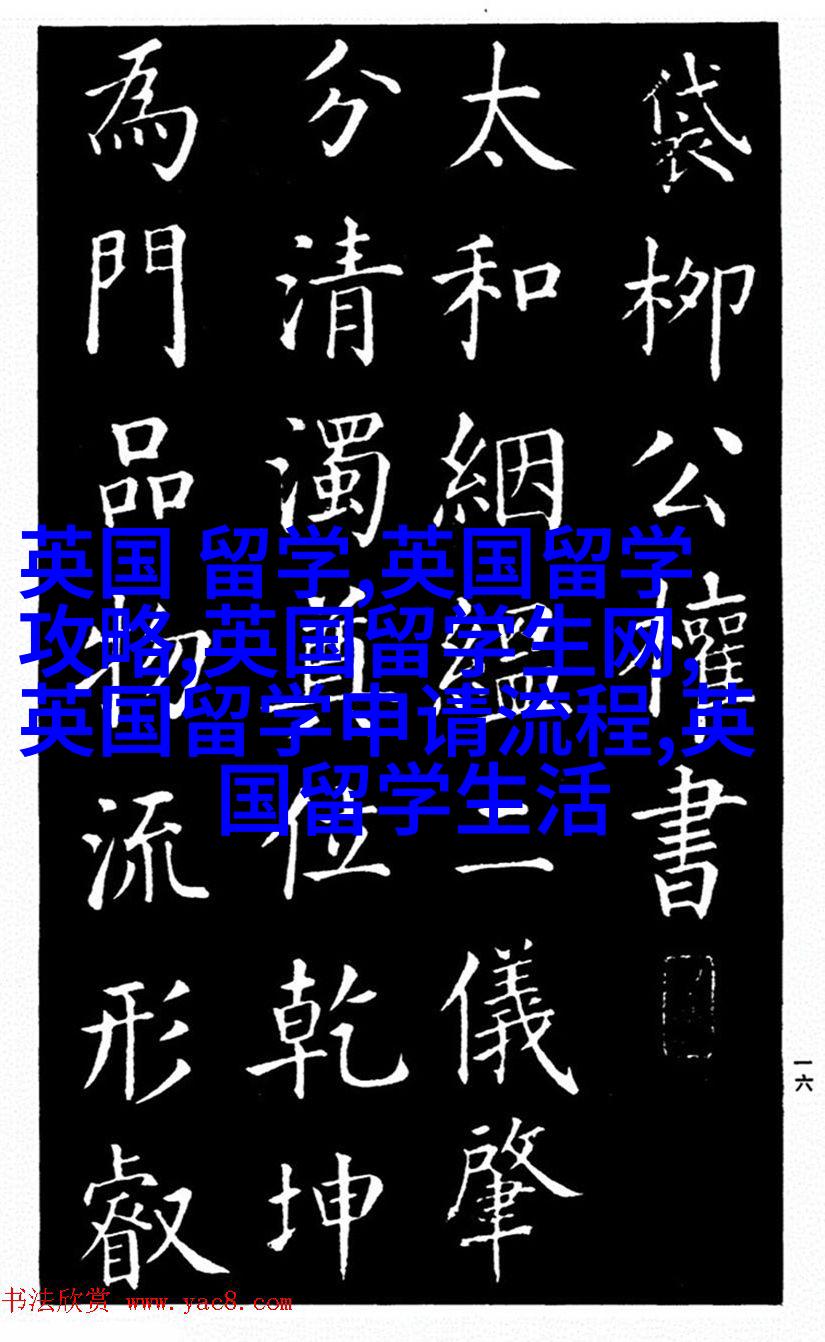 袋柳公權書
太和絪縕二儀肇
分清濁尊位乾坤
為門品物流形叡
英国 留学,英国留学
攻略,英国留学生网,
英国留学申请流程,英
国留学生活
一六
书法欣赏 www.yac8.com